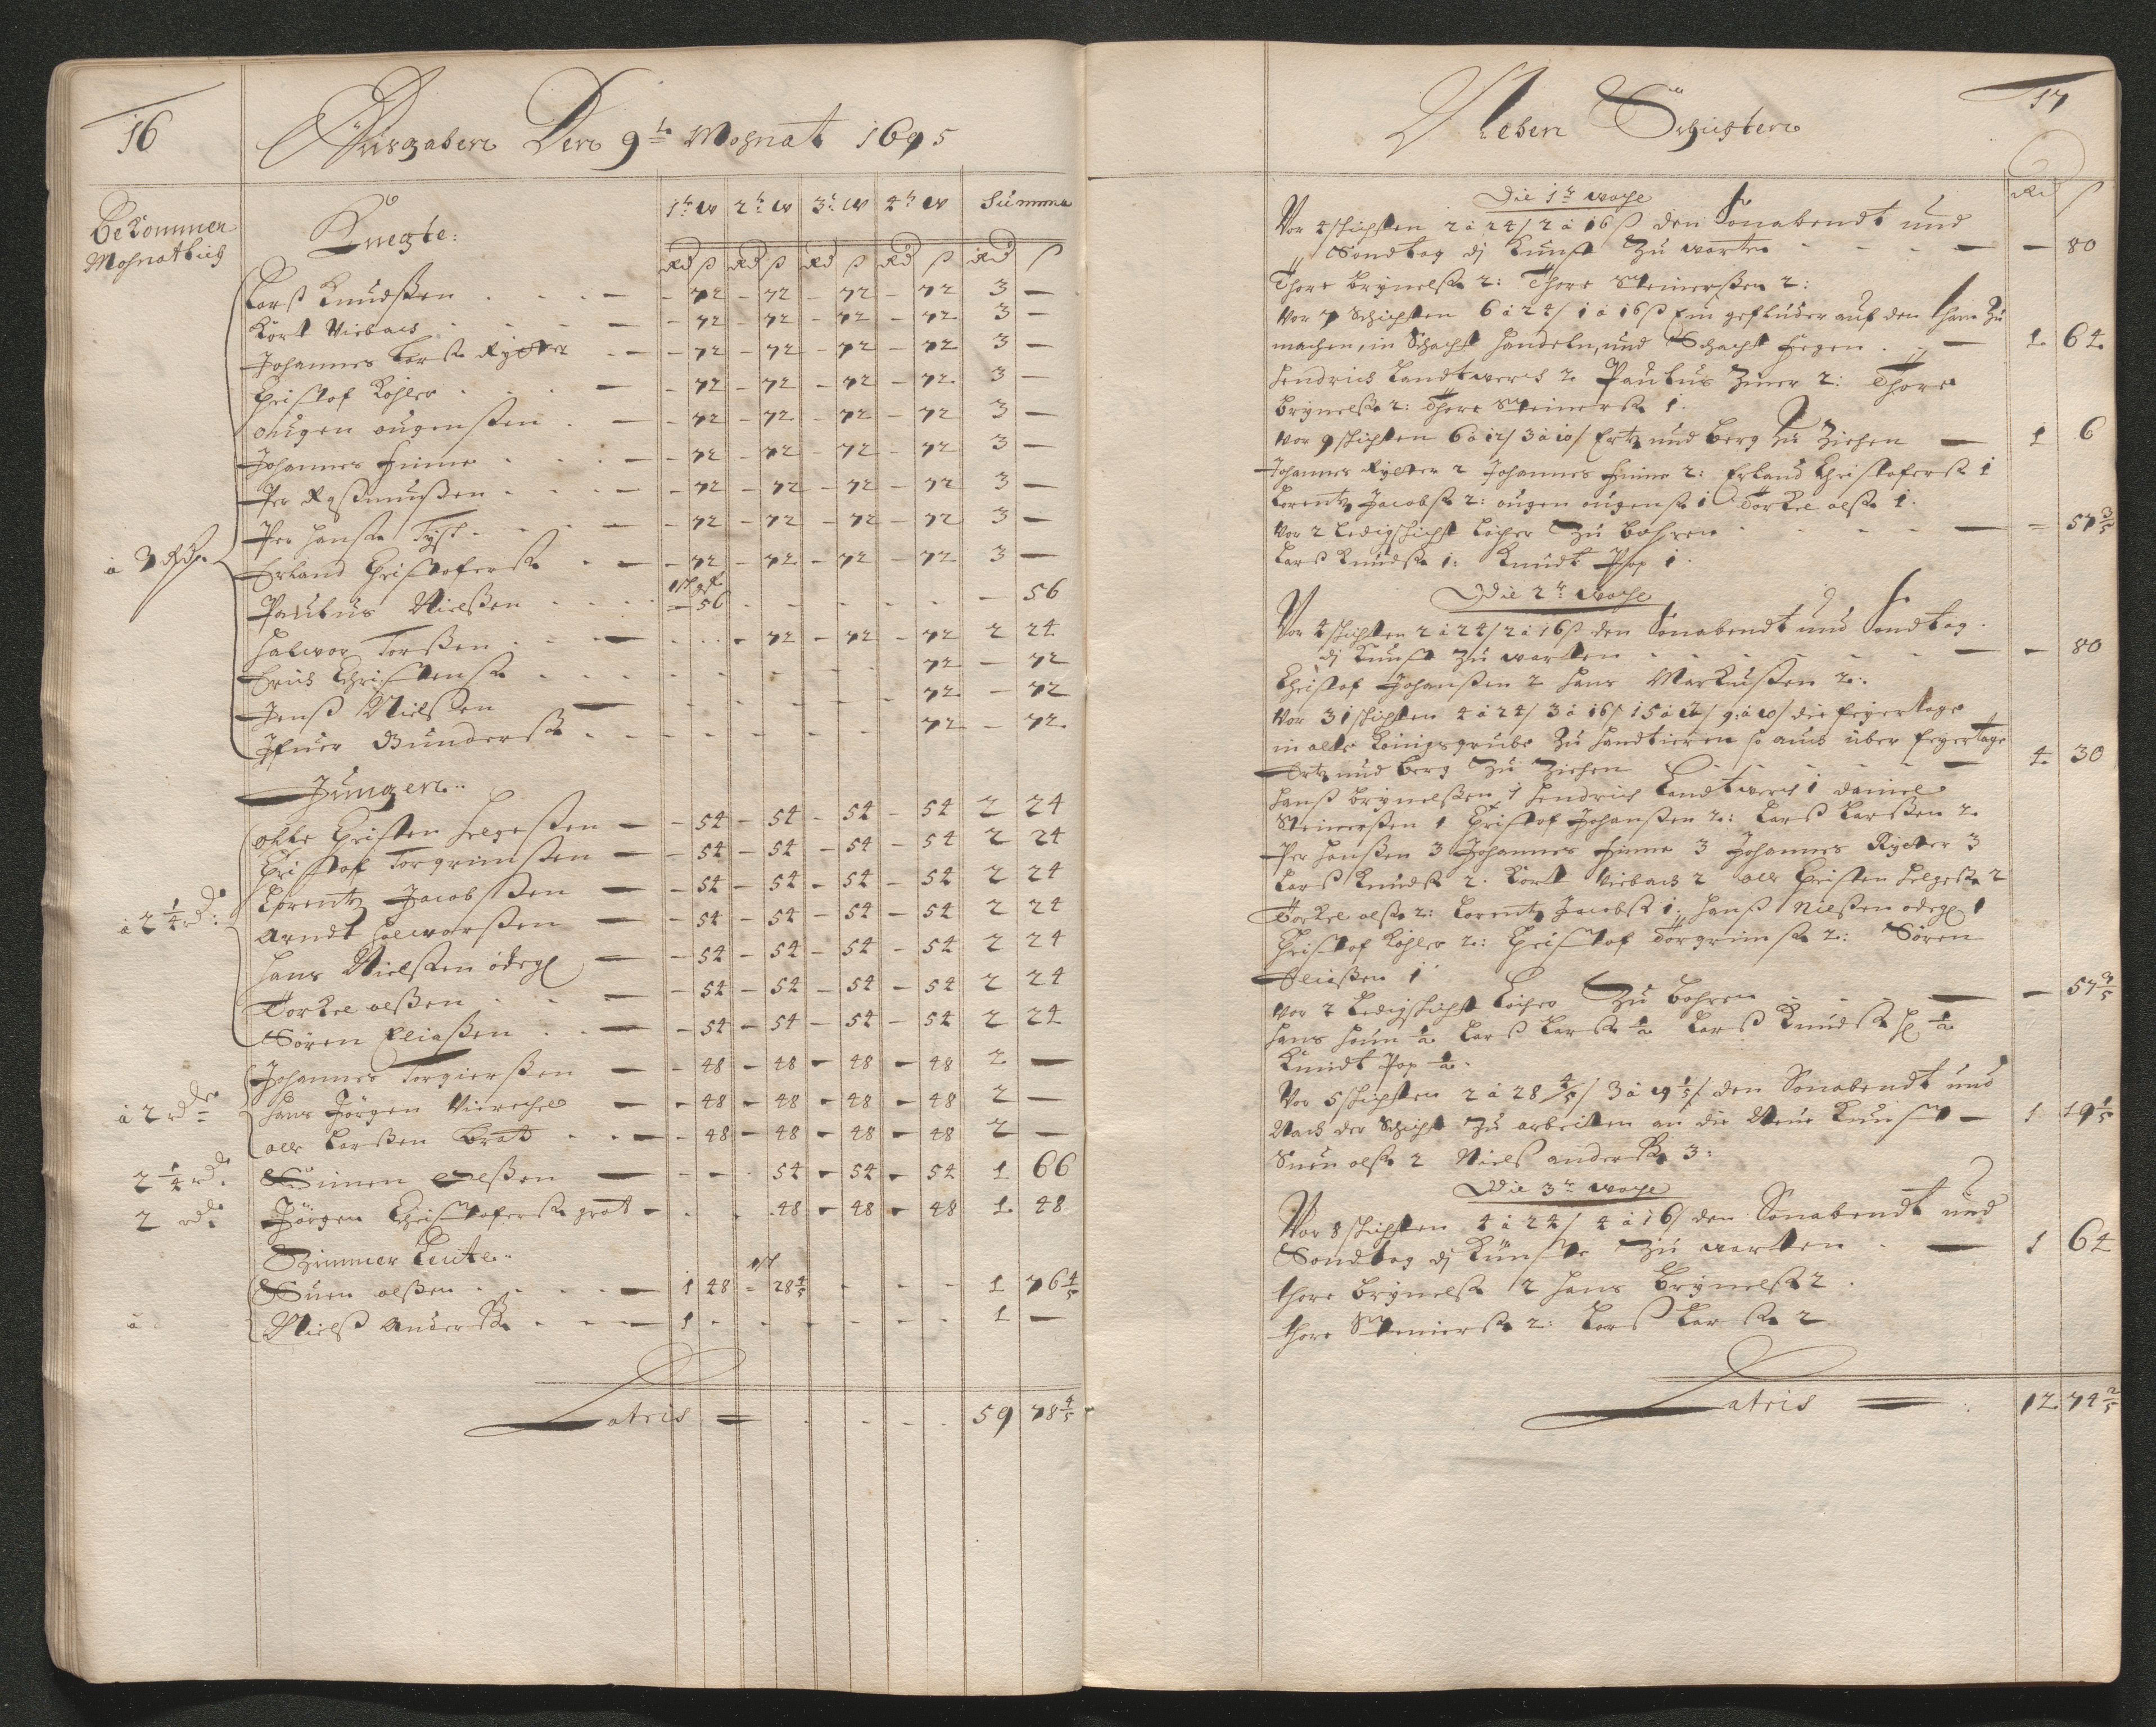 16
Ausgaben Den 9t Mohnat 1695
Bekommen
Mohnatlich
Knegte:
1te W 2te W 3te W 4te W Summa
Rd ß Rd ß Rd ß Rd ß Rd ß
Larß Knudßen - 72 - 72 - 72 - 72 3 -
Kort Viebach - 72 - 72 - 72 - 72 3 -
Johannes Larß Rytter - 72 - 72 - 72 - 72 3 -
Christof Köhler - 72 - 72 - 72 - 72 3 -
ougen ougenßen - 72 - 72 - 72 - 72 3 -
Johannes Finne - 72 - 72 - 72 - 72 3 -
Per Raßmußen - 72 - 72 - 72 - 72 3 -
Per Hanß Tysk - 72 - 72 - 72 - 72 3 -
à 3 Rd
Erland Christoferß - 72 - 72 - 72 - 72 3 -
Paulus Nielßen - 56 - - - - 56
Halwor Torßen - - 72 - 72 - 72 2 24
Erich Christenß - - - 72 - 72
Jenß Nielßen - - - 72 - 72
Ifuer Gunderß - - - 72 - 72
Jungen
olle Christen Helgeßen - 54 - 54 - 54 - 54 2 24
Christof Torgrimßen - 54 - 54 - 54 - 54 2 24
Lorentz Jacobßen - 54 - 54 - 54 - 54 2 24
à 2 1/4 rd:
Arndt Halworßen - 54 - 54 - 54 - 54 2 24
Hans Nielßen ödegl - 54 - 54 - 54 - 54 2 24
Torkel olßen - 54 - 54 - 54 - 54 2 24
Sören Eliaßen - 54 - 54 - 54 - 54 2 24
Johannes Torgierßen - 48 - 48 - 48 - 48 2 -
à 2 rd
Hans Jörgen Vierechel - 48 - 48 - 48 - 48 2 -
olle Larßen Brat - 48 - 48 - 48 - 48 2 -
2 1/4 rd
Simen olßen - - 54 - 54 - 54 1 66
2 rd
Jörgen Christoferß grot - - 48 - 48 - 48 1 48
Zimmer Leute
Suen olßen - 1 48 - 28 4/5 - - 1 76 4/5
à
Nielß Anderß - 1 - - - - 1 -
Latris - 59 78 4/5
17
Neben Schichten
Rd ß
Die 1te woche
Vor 4 schichten 2 à 24/ 2 à 16 ß den Sonabendt und
Sondtag dj Kunst Zu warten - - 80
Thore Brynelß 2: Thore Steinerßen 2:
Vor 7 Schichten 6 à 24/ 1 à 16 ß Ein gefluder auf den Zu
machen, in Schacht Handeln, und Schacht fegen - 1 64
Hendrich Landtwerch 2 Paulus 2: Thore
Brynelß 2: Thore Steinerß 1.
Vor 9 schichten 6 à 12/ 3 à 10/ Ertz und Berg Zu Ziehen - 1 6
Johannes Rytter 2 Johannes Finne 2: Erland Christoferß 1
Lorentz Jacobß 2: ougen ougenß 1 Torkel olß 1.
Vor 2 Ledigschicht Löcher Zu Bohren - - 57 3/5
Larß Knudß 1: Knudt Pop 1.
Die 2te woche
Vor 4 schichten 2 à 24/ 2 à 16 ß den Sonabendt und Sondtag
dj Kunst Zu warten - - 80
Christof Johanßen 2 Hans Markußen 2:
Vor 31 schichten 4 à 24/ 3 à 16/ 15 à 12/ 9 à 10/ die feyertage
in alte Königsgrube Zu Handtieren so auch über feyertage
Ertz und Berg Zu Ziehen - 4 30
Hanß Brynelßen 1 Hendrich Landtwerch 1 Daniel
Steinerßen 1 Christof Johanßen 2: Larß Larßen 2
Per Hanßen 3 Johannes Finne 3 Johannes Rytter 3
Larß Knudß 2. Kort Viebach 2 olle Christen Helgeß 2
Torkel olß 2: Lorentz Jacobß 1: Hanß Nielßen ödegl 1
Christof Köhler 2: Christof Torgrimß 2: Sören
Eliaßen 1
Vor 2 Ledigschicht Löcher Zu Bohren - - 57 3/5
Hans 1/2 Larß Larß 1/2 Larß Knudß 1/2
Knudt Pop 1/2.
Vor 5 schichten 2 à 28 4/5/ 3 à 19 1/5/ den Sonabendt und
Nach der Schicht Zu arbeiten an die Neue Kunst - 1 19 1/5
Suen olß 2 Nielß anderß 3:
Die 3te woche
Vor 8 schichten 4 à 24/ 4 à 16/ den Sonabendt und
Sondtag dj Künste Zu warten - 1 64
thore Brynelß 2 Hans Brynelß 2.
thore Steinerß 2: Larß Larß 2
Latris - 12 74 2/5